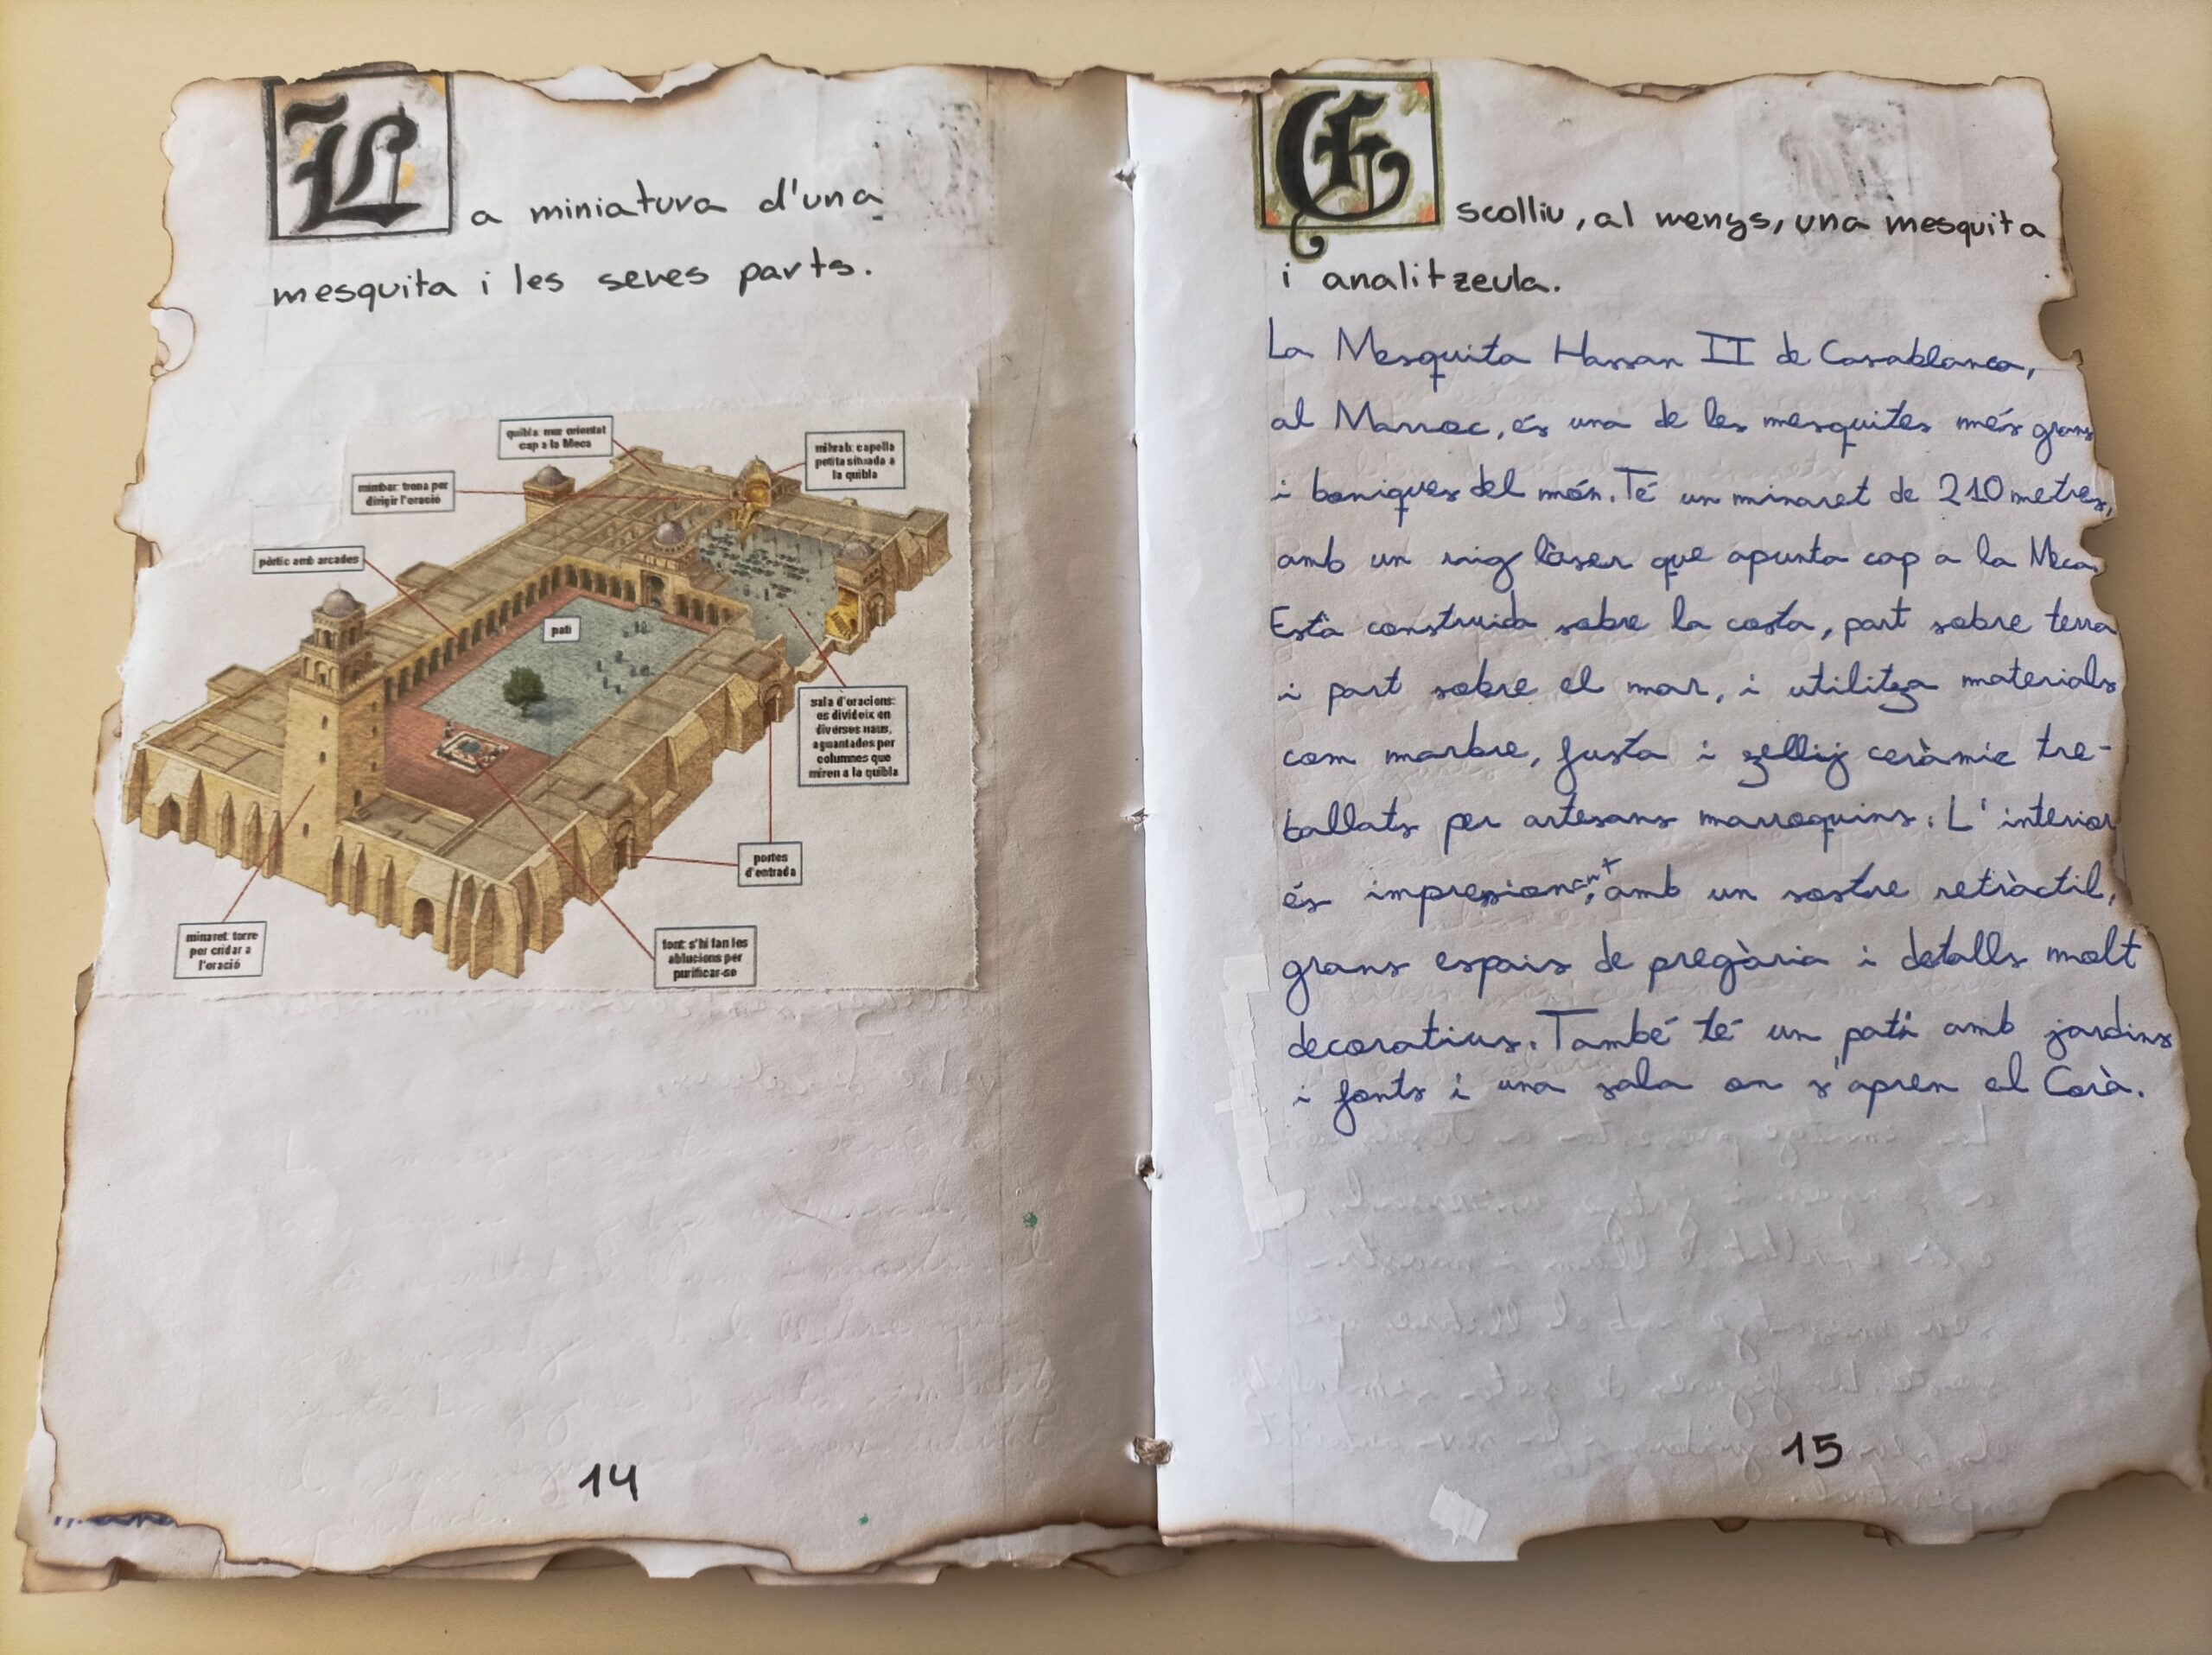 La miniatura d'una
mesquita i les seves parts.
quibla: mur orientat
cap a la Meca
mihrab: capella
petita situada a
la quibla
mimbar: trona per
dirigir l'oració
pòrtic amb arcades
pati
sala d'oracions:
es divideix en
diverses naus,
aguantades per
columnes que
miren a la quibla
portes
d'entrada
minaret: torre
per cridar a
l'oració
font: s'hi fan les
ablucions per
purificar-se
14
Escolliu, al menys, una mesquita
i analitzeula.
La Mesquita Hassan II de Casablanca,
al Marroc, és una de les mesquites més grans
i boniques del món. Té un minaret de 210 metres,
amb un raig làser que apunta cap a la Meca.
Està construida sobre la costa, part sobre terra
i part sobre el mar, i utilitza materials
com marbre, fusta i zellij ceràmic tre-
ballats per artesans marroquins. L'interior
és impresionant, amb un sostre retràctil,
grans espais de pregària i detalls molt
decoratius. També té un pati amb jardins
i fonts i una sala on s'apren el Corà.
15